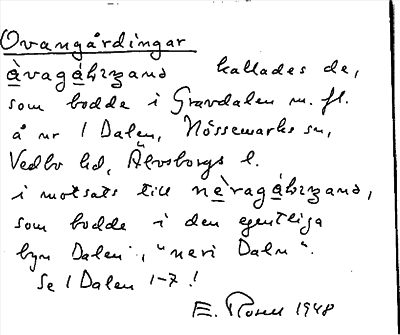 Ovangårdingar
àvagáhrzand kallades de,
som bodde i Gravdalen m. fl.
å nr 1 Dalen, Nössemarks sn,
Vedbo hd, Älvsborgs l.
i motsats till nèragáhrzand,
som bodde i den egentliga
byn Dalen, "neri Daln".
Se 1 Dalen 1-7!
E. Rosell 1948